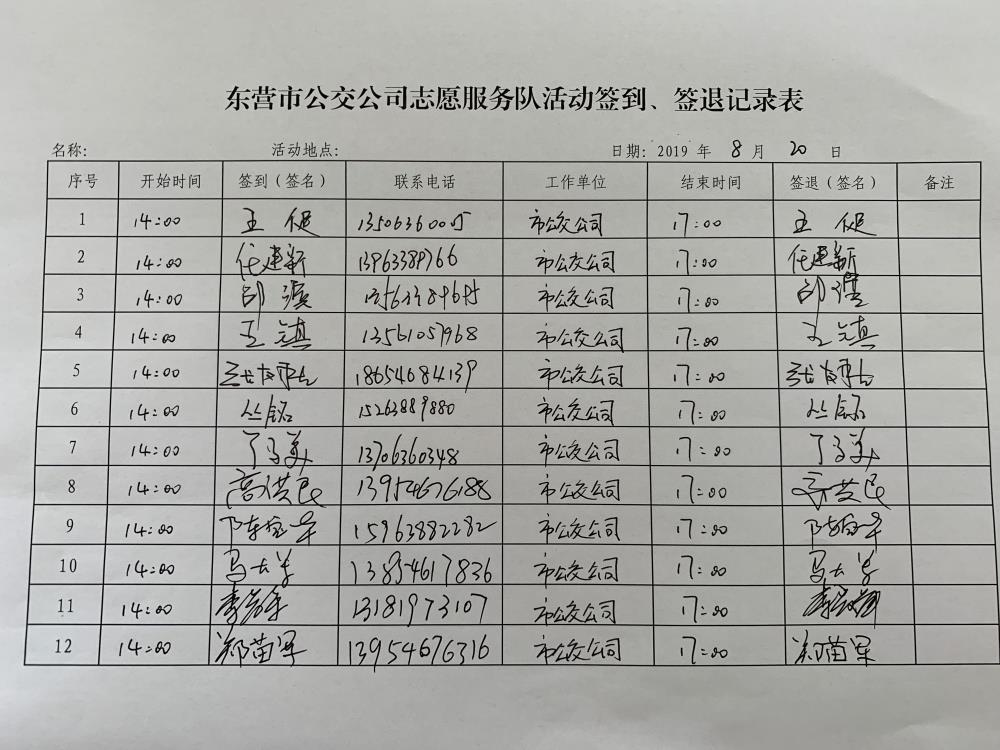 东营市公交公司志愿服务队活动签到、签退记录表
名称: 活动地点: 日期: 2019 年 8 月 20 日
序号 开始时间 签到(签名) 联系电话 工作单位 结束时间 签退(签名) 备注
1 14:00 王 13506360005 市公交公司 17:00 王
2 14:00 任建新 13963389766 市公交公司 17:00 任建新
3 14:00 市公交公司 17:00
4 14:00 王镇 13561057968 市公交公司 17:00 王镇
5 14:00 18654684139 市公交公司 17:00
6 14:00 丛铭 15263889880 市公交公司 17:00 丛铭
7 14:00 13706360348 市公交公司 17:00
8 14:00 高洪民 13954676188 市公交公司 17:00 高洪民
9 14:00 15963882282 市公交公司 17:00
10 14:00 13854617836 市公交公司 17:00
11 14:00 13181973107 市公交公司 17:00
12 14:00 郑苗军 13954676316 市公交公司 17:00 郑苗军